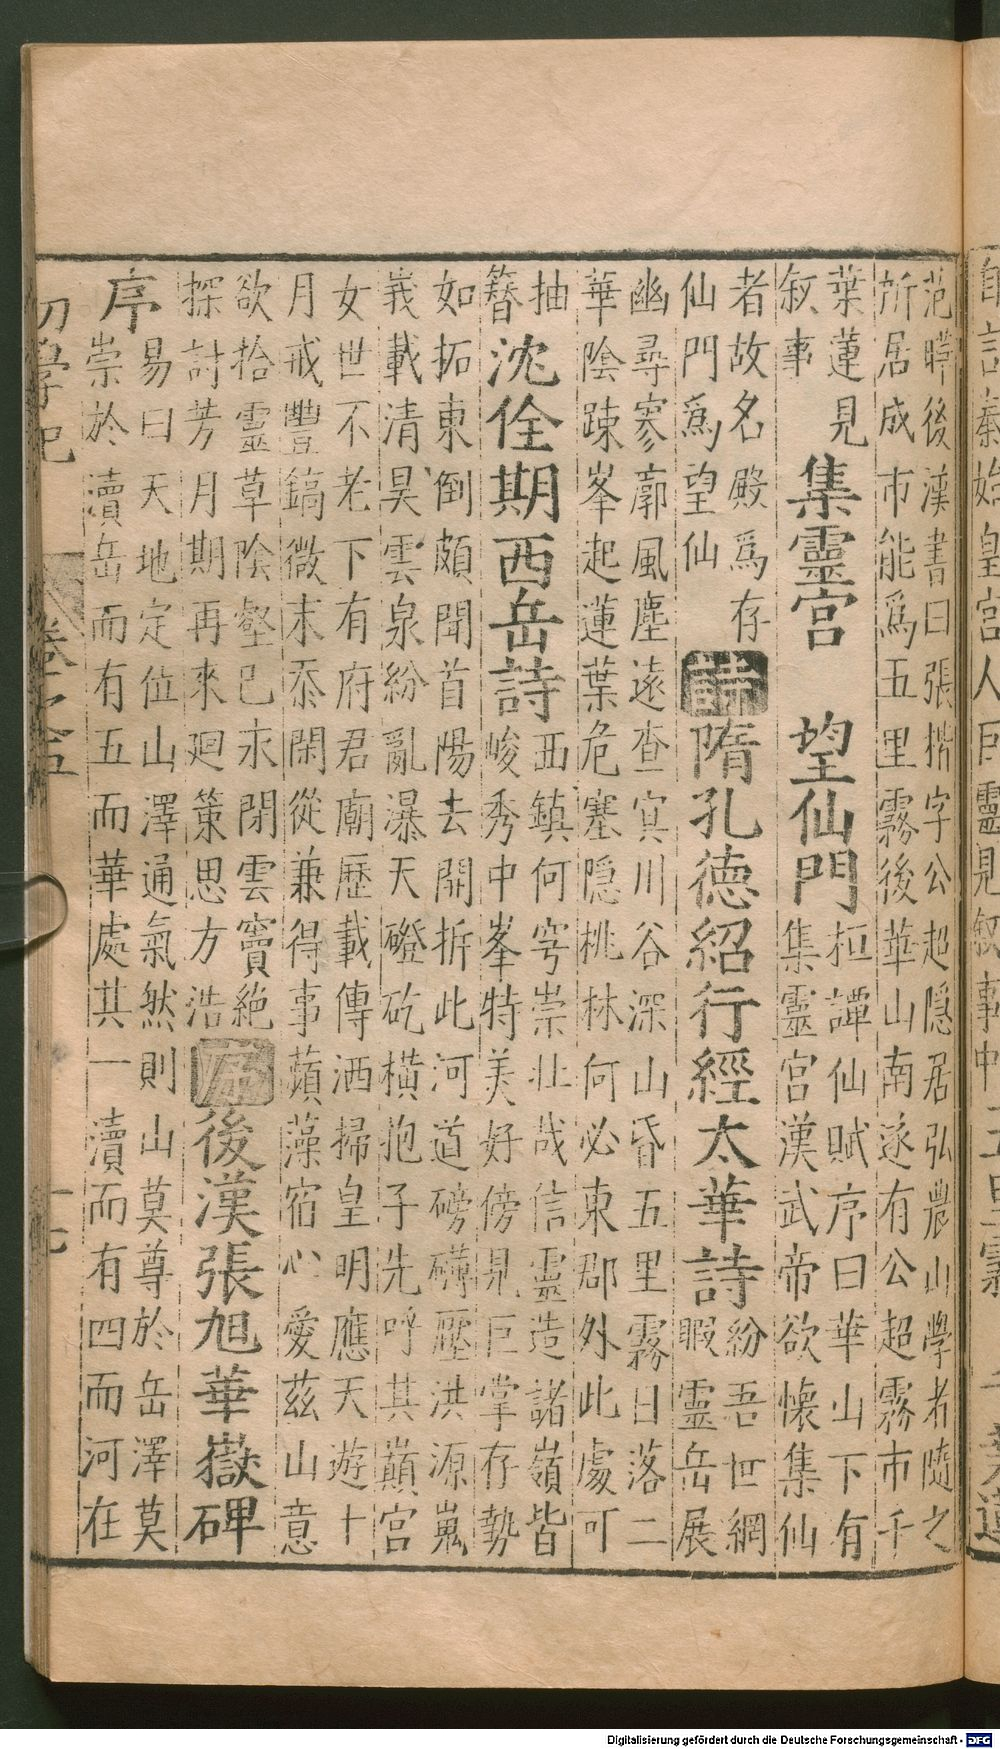 范曄後漢書曰張揩字公超隱居弘農山學者隨之
所居成市能爲五里霧後華山南遂有公超霧市千
葉蓮見
叙事
集靈宮　望仙門
桓譚仙賦序曰華山下有
集靈宮漢武帝欲懷集仙
者故名殿爲存
仙門爲望仙
詩
隋孔德紹行經太華詩
紛吾世網
暇靈岳展
幽尋寥廓風塵遠查㝠川谷深山昏五里霧日落二
華陰踈峯起蓮葉危塞隱桃林何必東郡外此處可
抽
簪
沈佺期西岳詩
西鎮何穹崇壯哉信靈造諸嶺皆
峻秀中峯特美好傍見巨掌存勢
如拓東倒頗聞首陽去開拆此河道磅礴壓洪源嵬
峩載清昊雲泉紛亂瀑天磴矻橫抱子先呼其巔宮
女世不老下有府君廟歷載傳洒掃皇明應天遊十
月戒豐鎬微末忝閑從兼得事蘋藻宿心愛茲山意
欲拾靈草陰壑已氷閉雲竇絕
探討芳月期再來迴策思方浩
序
後漢張旭華嶽碑
序
易曰天地定位山澤通氣然則山莫尊於岳澤莫
崇於瀆岳而有五而華處其一瀆而有四而河在
初學記　卷之五　十七
Digitalisierung gefördert durch die Deutsche Forschungsgemeinschaft - DFG